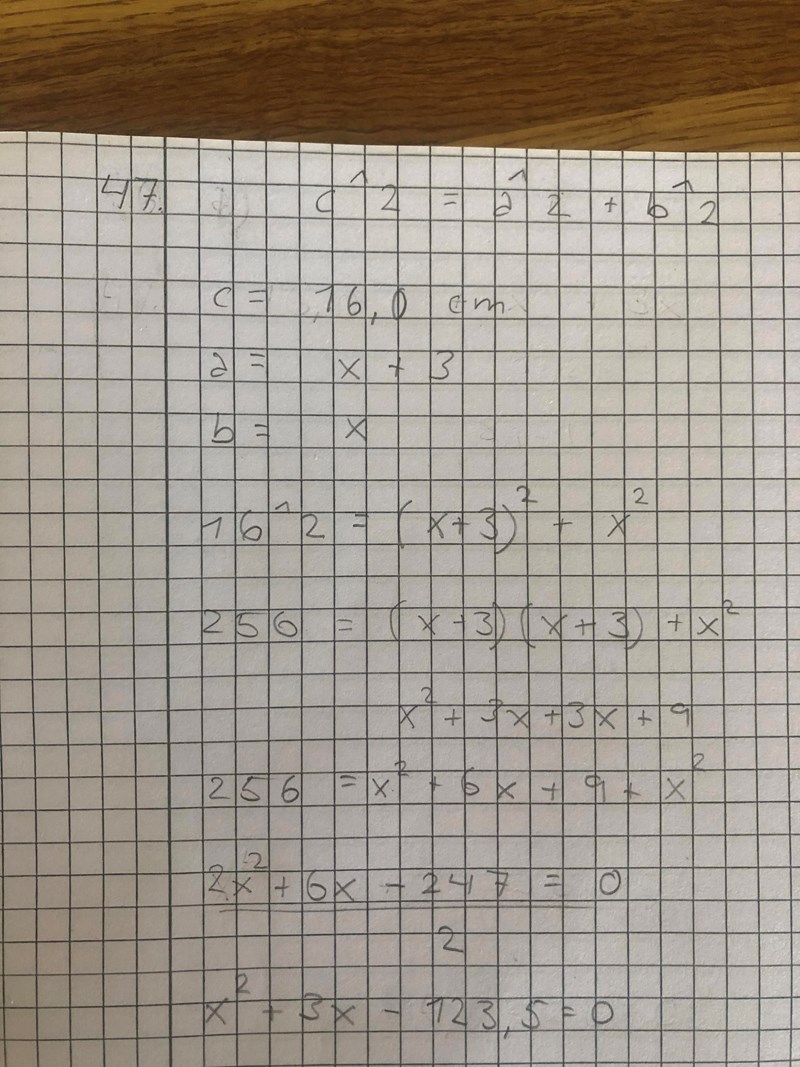 47. c^2 = a^2 + b^2
c = 16,0 cm
a = x + 3
b = x
16^2 = (x+3)² + x²
256 = (x+3)(x+3) + x²
x² + 3x + 3x + 9
256 = x² + 6x + 9 + x²
2x² + 6x - 247 = 0
2
x² + 3x - 123,5 = 0